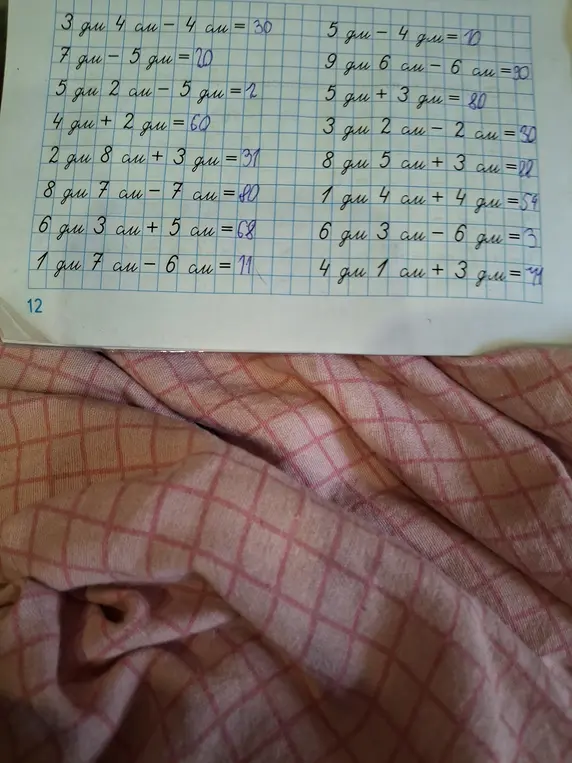 3 дм 4 см − 4 см = 30
7 дм − 5 дм = 20
5 дм 2 см − 5 дм = 2
4 дм + 2 дм = 60
2 дм 8 см + 3 дм = 31
8 дм 7 см − 7 см = 80
6 дм 3 см + 5 см = 68
1 дм 7 см − 6 см = 11
5 дм − 4 дм = 10
9 дм 6 см − 6 см = 90
5 дм + 3 дм = 80
3 дм 2 см − 2 см = 30
8 дм 5 см + 3 см =
1 дм 4 см + 4 дм = 54
6 дм 3 см − 6 дм = 3
4 дм 1 см + 3 дм =
12